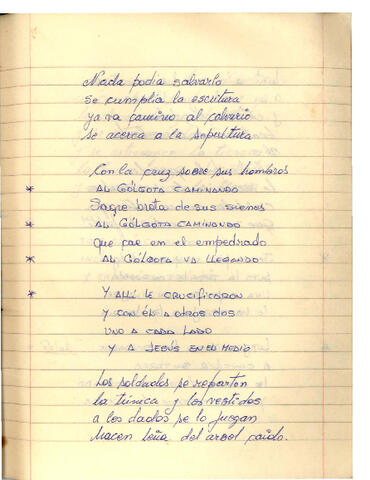 Nada podia salvarlo
se cumplia la escritura
ya va camino al calvario
se acerca a la sepultura
Con la cruz sobre sus hombros
* AL GÓLGOTA CAMINANDO
Sagre brota de sus sienes
* AL GÓLGOTA CAMINANDO
que cae en el empedrado
* AL GÓLGOTA VA LLEGANDO
* Y ALLÍ LE CRUCIFICARON
Y CON ÉL A OTROS DOS
UNO A CADA LADO
Y A JESÚS EN EL MEDIO
Los soldados se reparten
la túnica y los vestidos
a los dados se lo juegan
hacen leña del arbol caido.